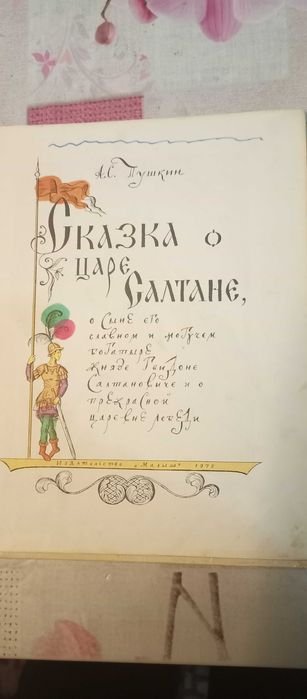 А.С. Пушкин
Сказка о
царе
Салтане,
о сыне его
славном и могучем
богатыре
князе Гвидоне
Салтановиче и о
прекрасной
царевне лебеди
Издательство „Малыш" 1972
N